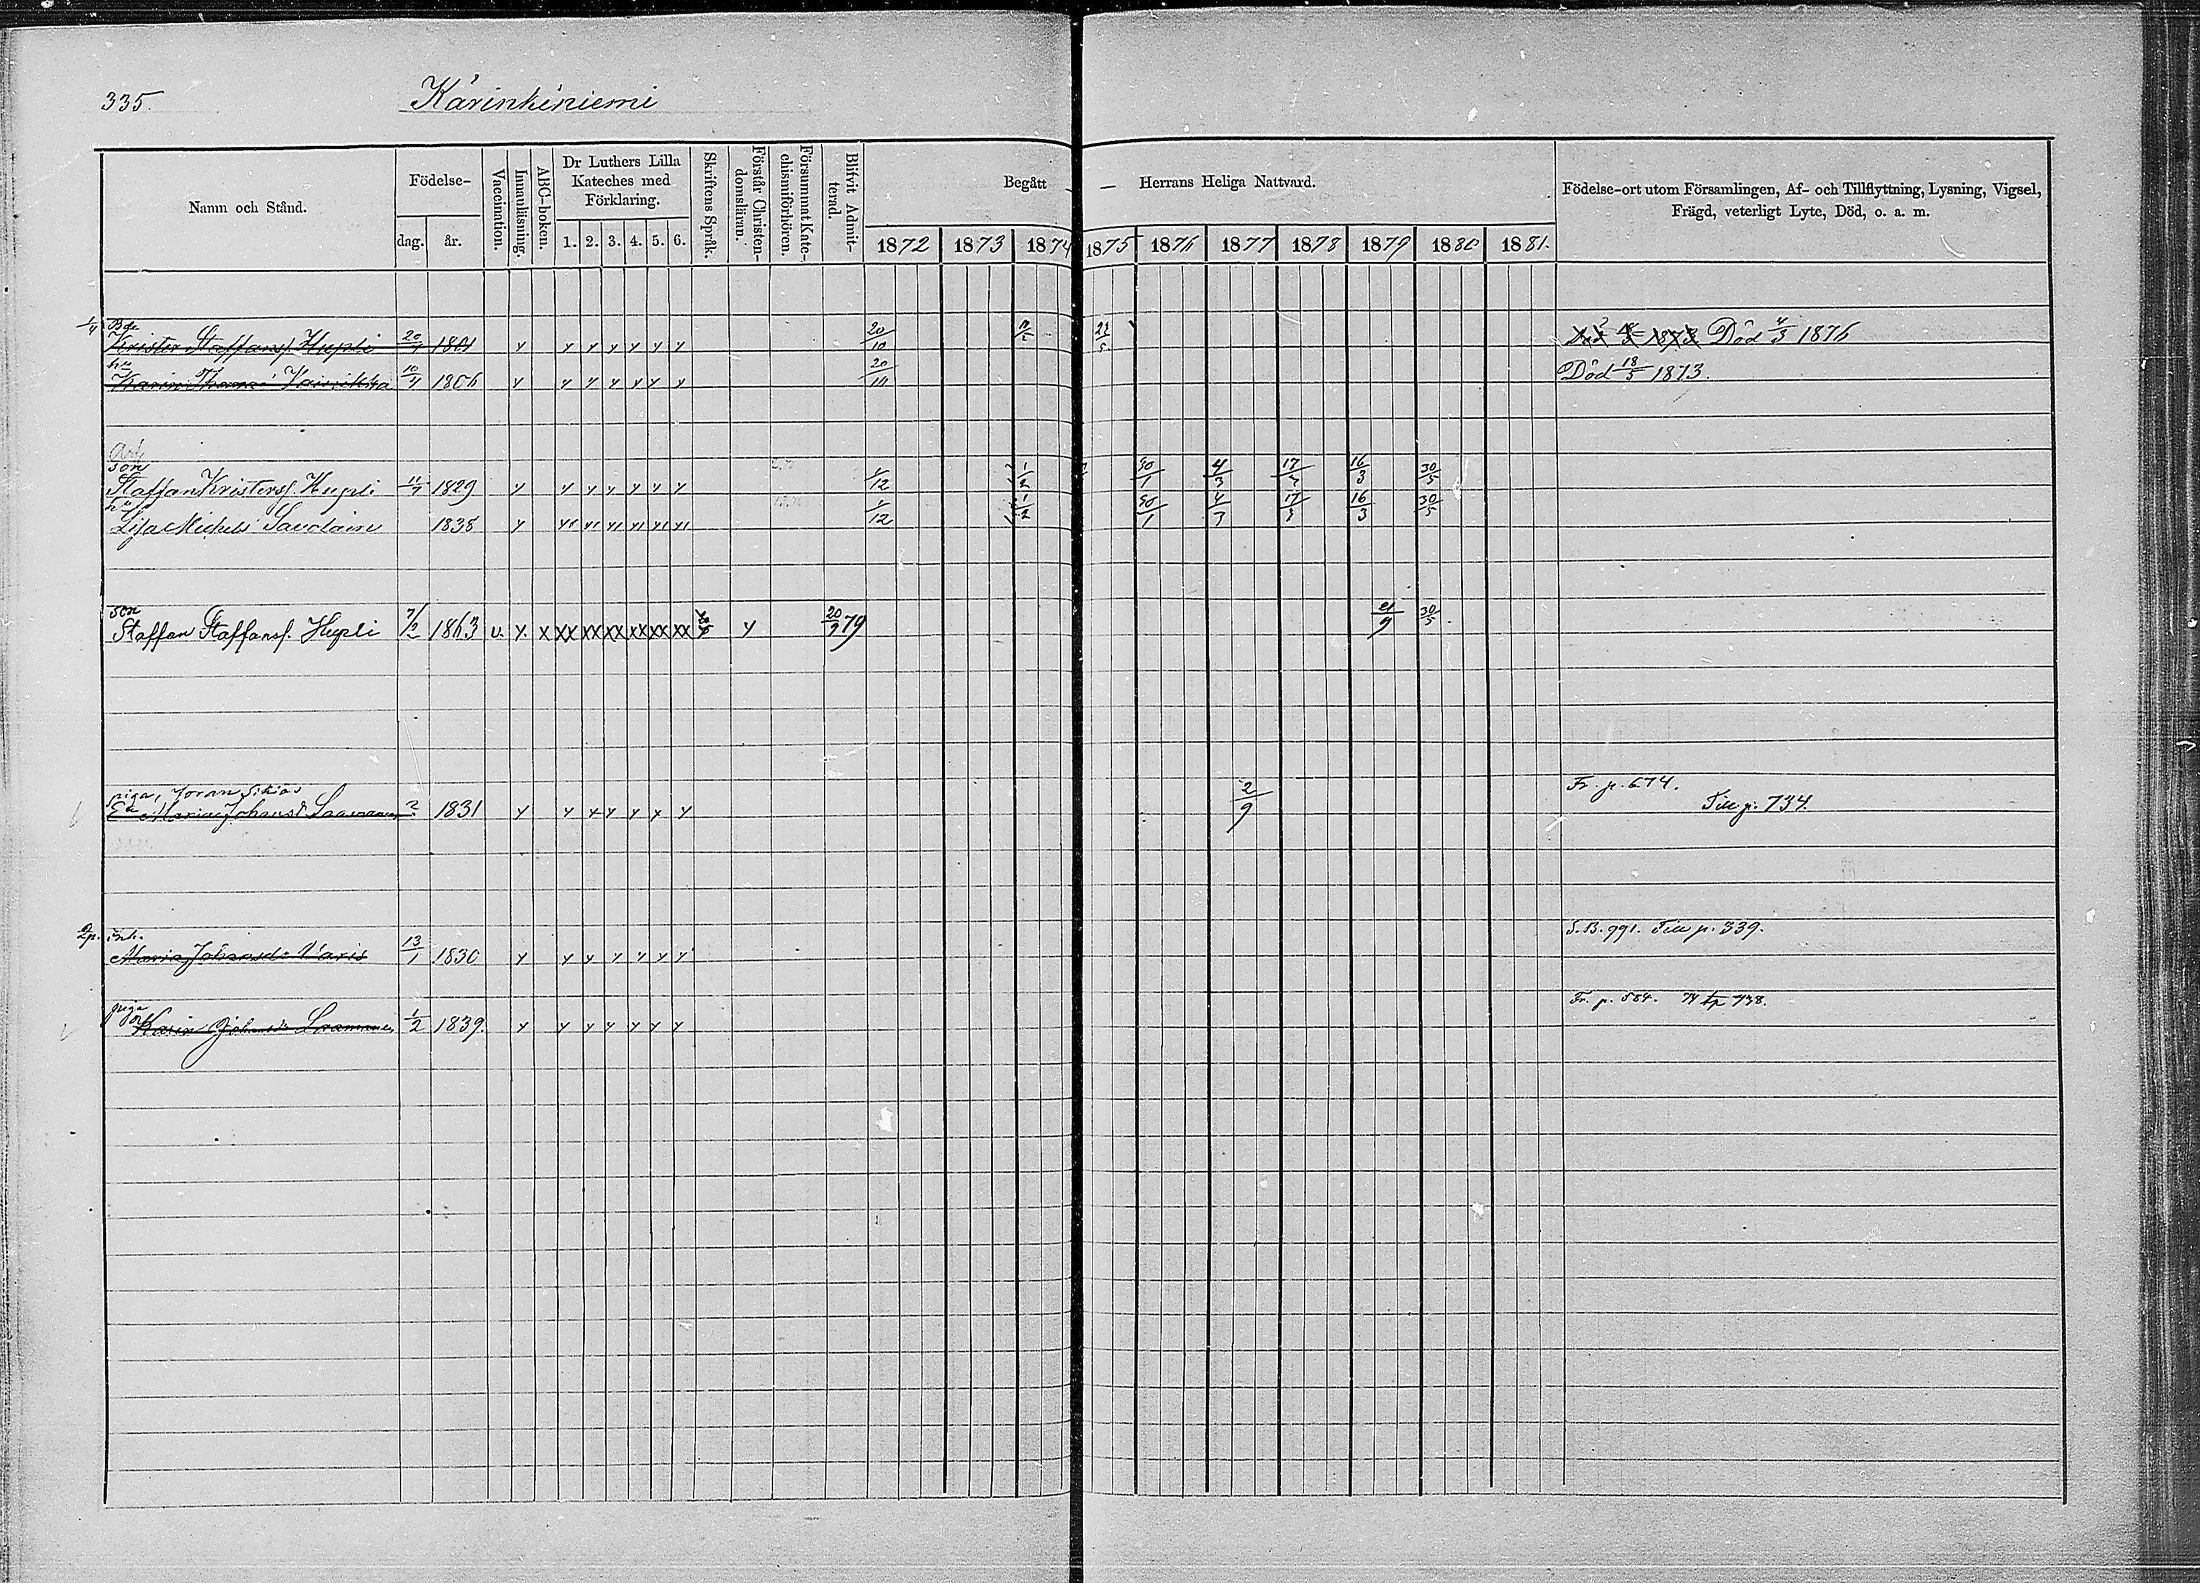 335.
Kärinkiniemi
Namn och Stånd.
Födelse-
dag.
år.
Vaccination.
Innanläsning.
ABC-boken.
Dr Luthers Lilla
Kateches med
Förklaring.
1. 2. 3. 4. 5. 6.
Skriftens Språk.
Förstår Christen-
domsläran.
Försummat Kate-
chismiförhören.
Blifvit Admit-
terad.
Begått — — Herrans Heliga Nattvard.
1872 1873 1874 1875 1876 1877 1878 1879 1880 1881.
Födelse-ort utom Församlingen, Af- och Tillflyttning, Lysning, Vigsel,
Frägd, veterligt Lyte, Död, o. a. m.
1/4 Bde
Krister Staffans. Hupli 1801 y y y y y y y 20/10 Död 4/3 1876
hu
Karin Thomæ 1806 y y y y y y y 20/10 Död 18/5 1873.
son
Staffan Kristers. Hupli 11/7 1829 y y y y y y y 1/12 1/2 30/1 4/3 17/3 16/3 30/5
hu
Lisa Michels 1838 y y1 y1 y1 y1 y1 y1 1/12 1/2 30/1 4/3 17/3 16/3 30/5
son
Staffan Staffans. Hupli 7/2 1863 v. y. x xx xx xx xx xx xx y 20/9 79 21/9 30/5
piga, Joran
Maria Johansd. Laamanen 1831 y y y y y y y 2/9 Fr. p. 674.
Till p. 734.
2p. inh.
Maria Johansd. Varis 13/1 1830 y y y y y y y S.B. 991. Till p. 339.
piga
Karin Johansd. Laamanen 1/2 1839. y y y y y y y Fr. p. 554. 738.